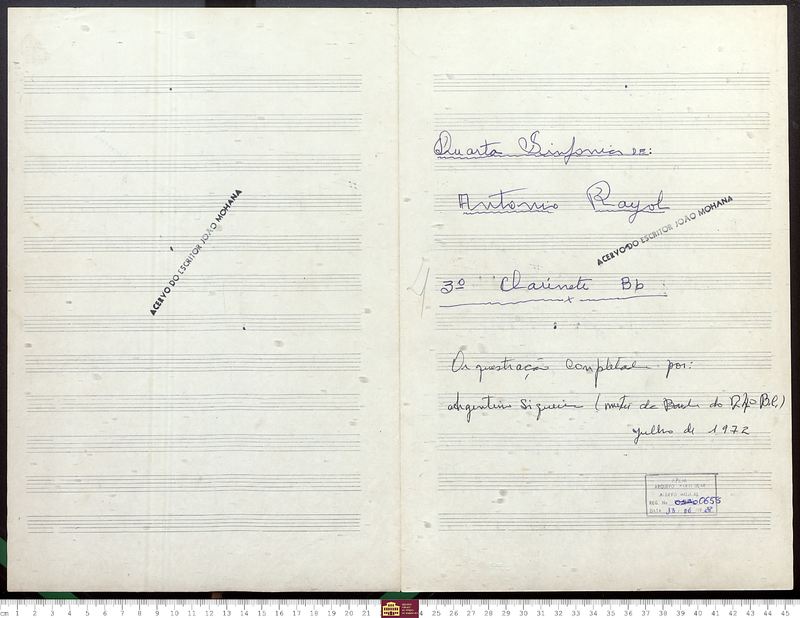 ACERVO DO ESCRITOR JOÃO MOHANA
Quarta Sinfonia DE:
Antonio Rayol
ACERVO DO ESCRITOR JOÃO MOHANA
3º Clarinete Bb:
x
Orquestração Completada por:
Argentino Siqueira (mestre da Banda do
julho de 1972
REG. No 0655
DATA
cm 1 2 3 4 5 6 7 8 9 10 11 12 13 14 15 16 17 18 19 20 21 24 25 26 27 28 29 30 31 32 33 34 35 36 37 38 39 40 41 42 43 44 45